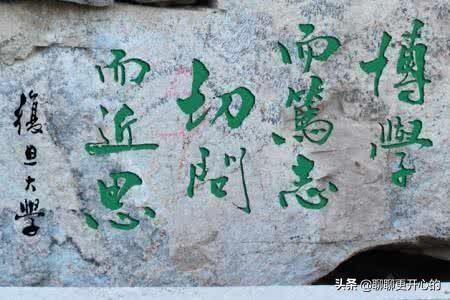 博學
而篤志
切問
而近思
復旦大學
头条 @聊聊更开心的